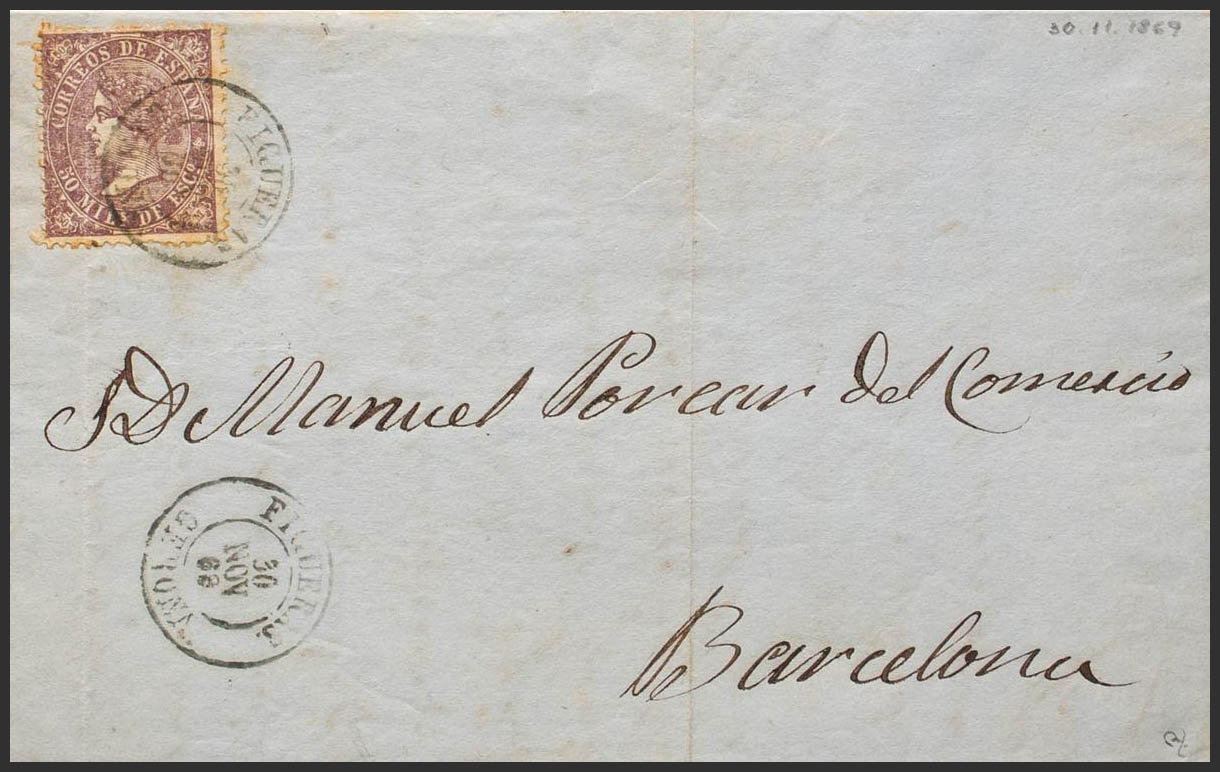 30.11.1869
CORREOS DE ESPAÑA
50 MILs DE ESCo
FIGUERAS
S D Manuel Porcar del Comercio
FIGUERAS
30
NOV
69
GERONA
Barcelona